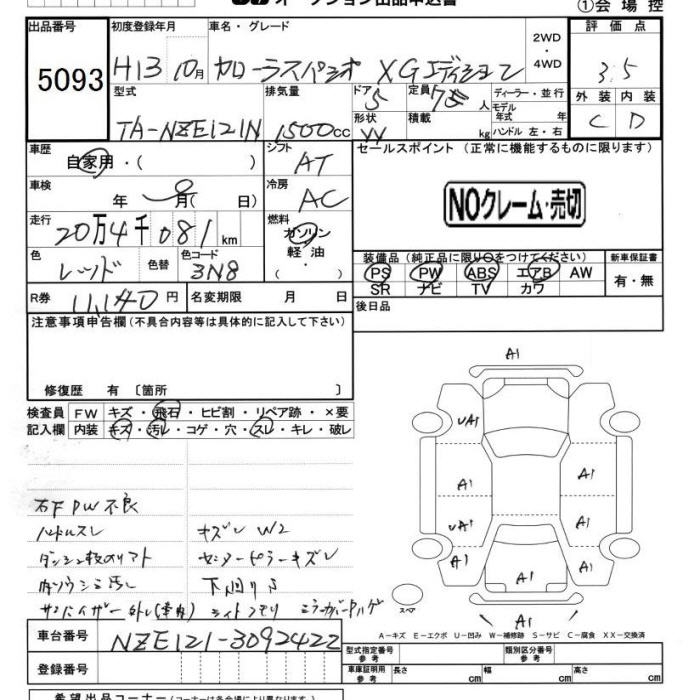 ①会場控
出品番号 初度登録年月 車名・グレード 2WD・4WD 評価点
5093 H13 10月 カローラスパシオ XGエディション 3.5
型式 排気量 ドア 5 定員 7 人 ディーラー・並行 外装 内装
TA-NZE121N 1500cc 形状 W 積載 kg モデル年式 年式 ハンドル 左・右 C D
車歴 シフト セールスポイント (正常に機能するものに限ります)
自家用・( ) AT
車検 冷房 NOクレーム・売切
年 月( 日) AC
走行 燃料
20万4千081km ガソリン
色 色替 色コード 軽油 装備品 (純正品に限り○をつけてください) 新車保証書
レッド 3N8 PS PW ABS エアB AW 有・無
R券 11,140円 名変期限 月 日 SR ナビ TV カワ
注意事項申告欄 (不具合内容等は具体的に記入して下さい) 後日品
修復歴 有 〔箇所 〕
検査員 FW キズ・飛石・ヒビ割・リペア跡・×要
記入欄 内装 キズ・汚レ・コゲ・穴・スレ・キレ・破レ
A1
UA1
A1 A1
UA1 A1
A1 A1
A1
A1
スペア
右F PW不良
ハンドルスレ キズレ W2
センターピラーキズレ
下回りサ
ライトクモリ
A－キズ E－エクボ U－凹み W－補修跡 S－サビ C－腐食 XX－交換済
車台番号 NZE121-3092422 型式指定番号 参考 類別区分番号 参考
登録番号 車庫証明用 参考 長さ cm 幅 cm 高さ cm
希望出品コーナー (コーナーは各会場により異なります)